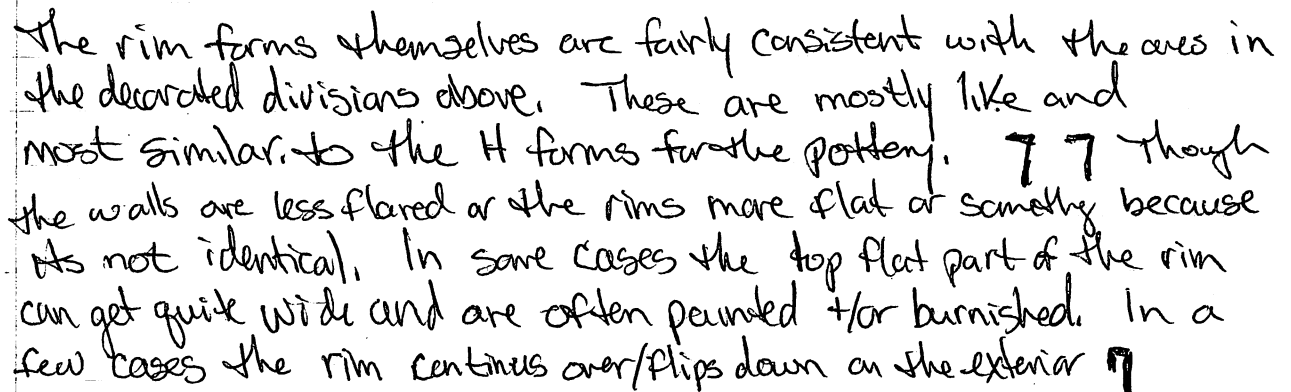 The rim forms themselves are fairly consistent with the ones in
the decorated divisions above. These are mostly like and
most similar to the H forms for the pottery. Though
the walls are less flared or the rims more flat or somethg because
its not identical. In some cases the top flat part of the rim
can get quite wide and are often painted +/or burnished. In a
few cases the rim continus over/flips down on the exterior